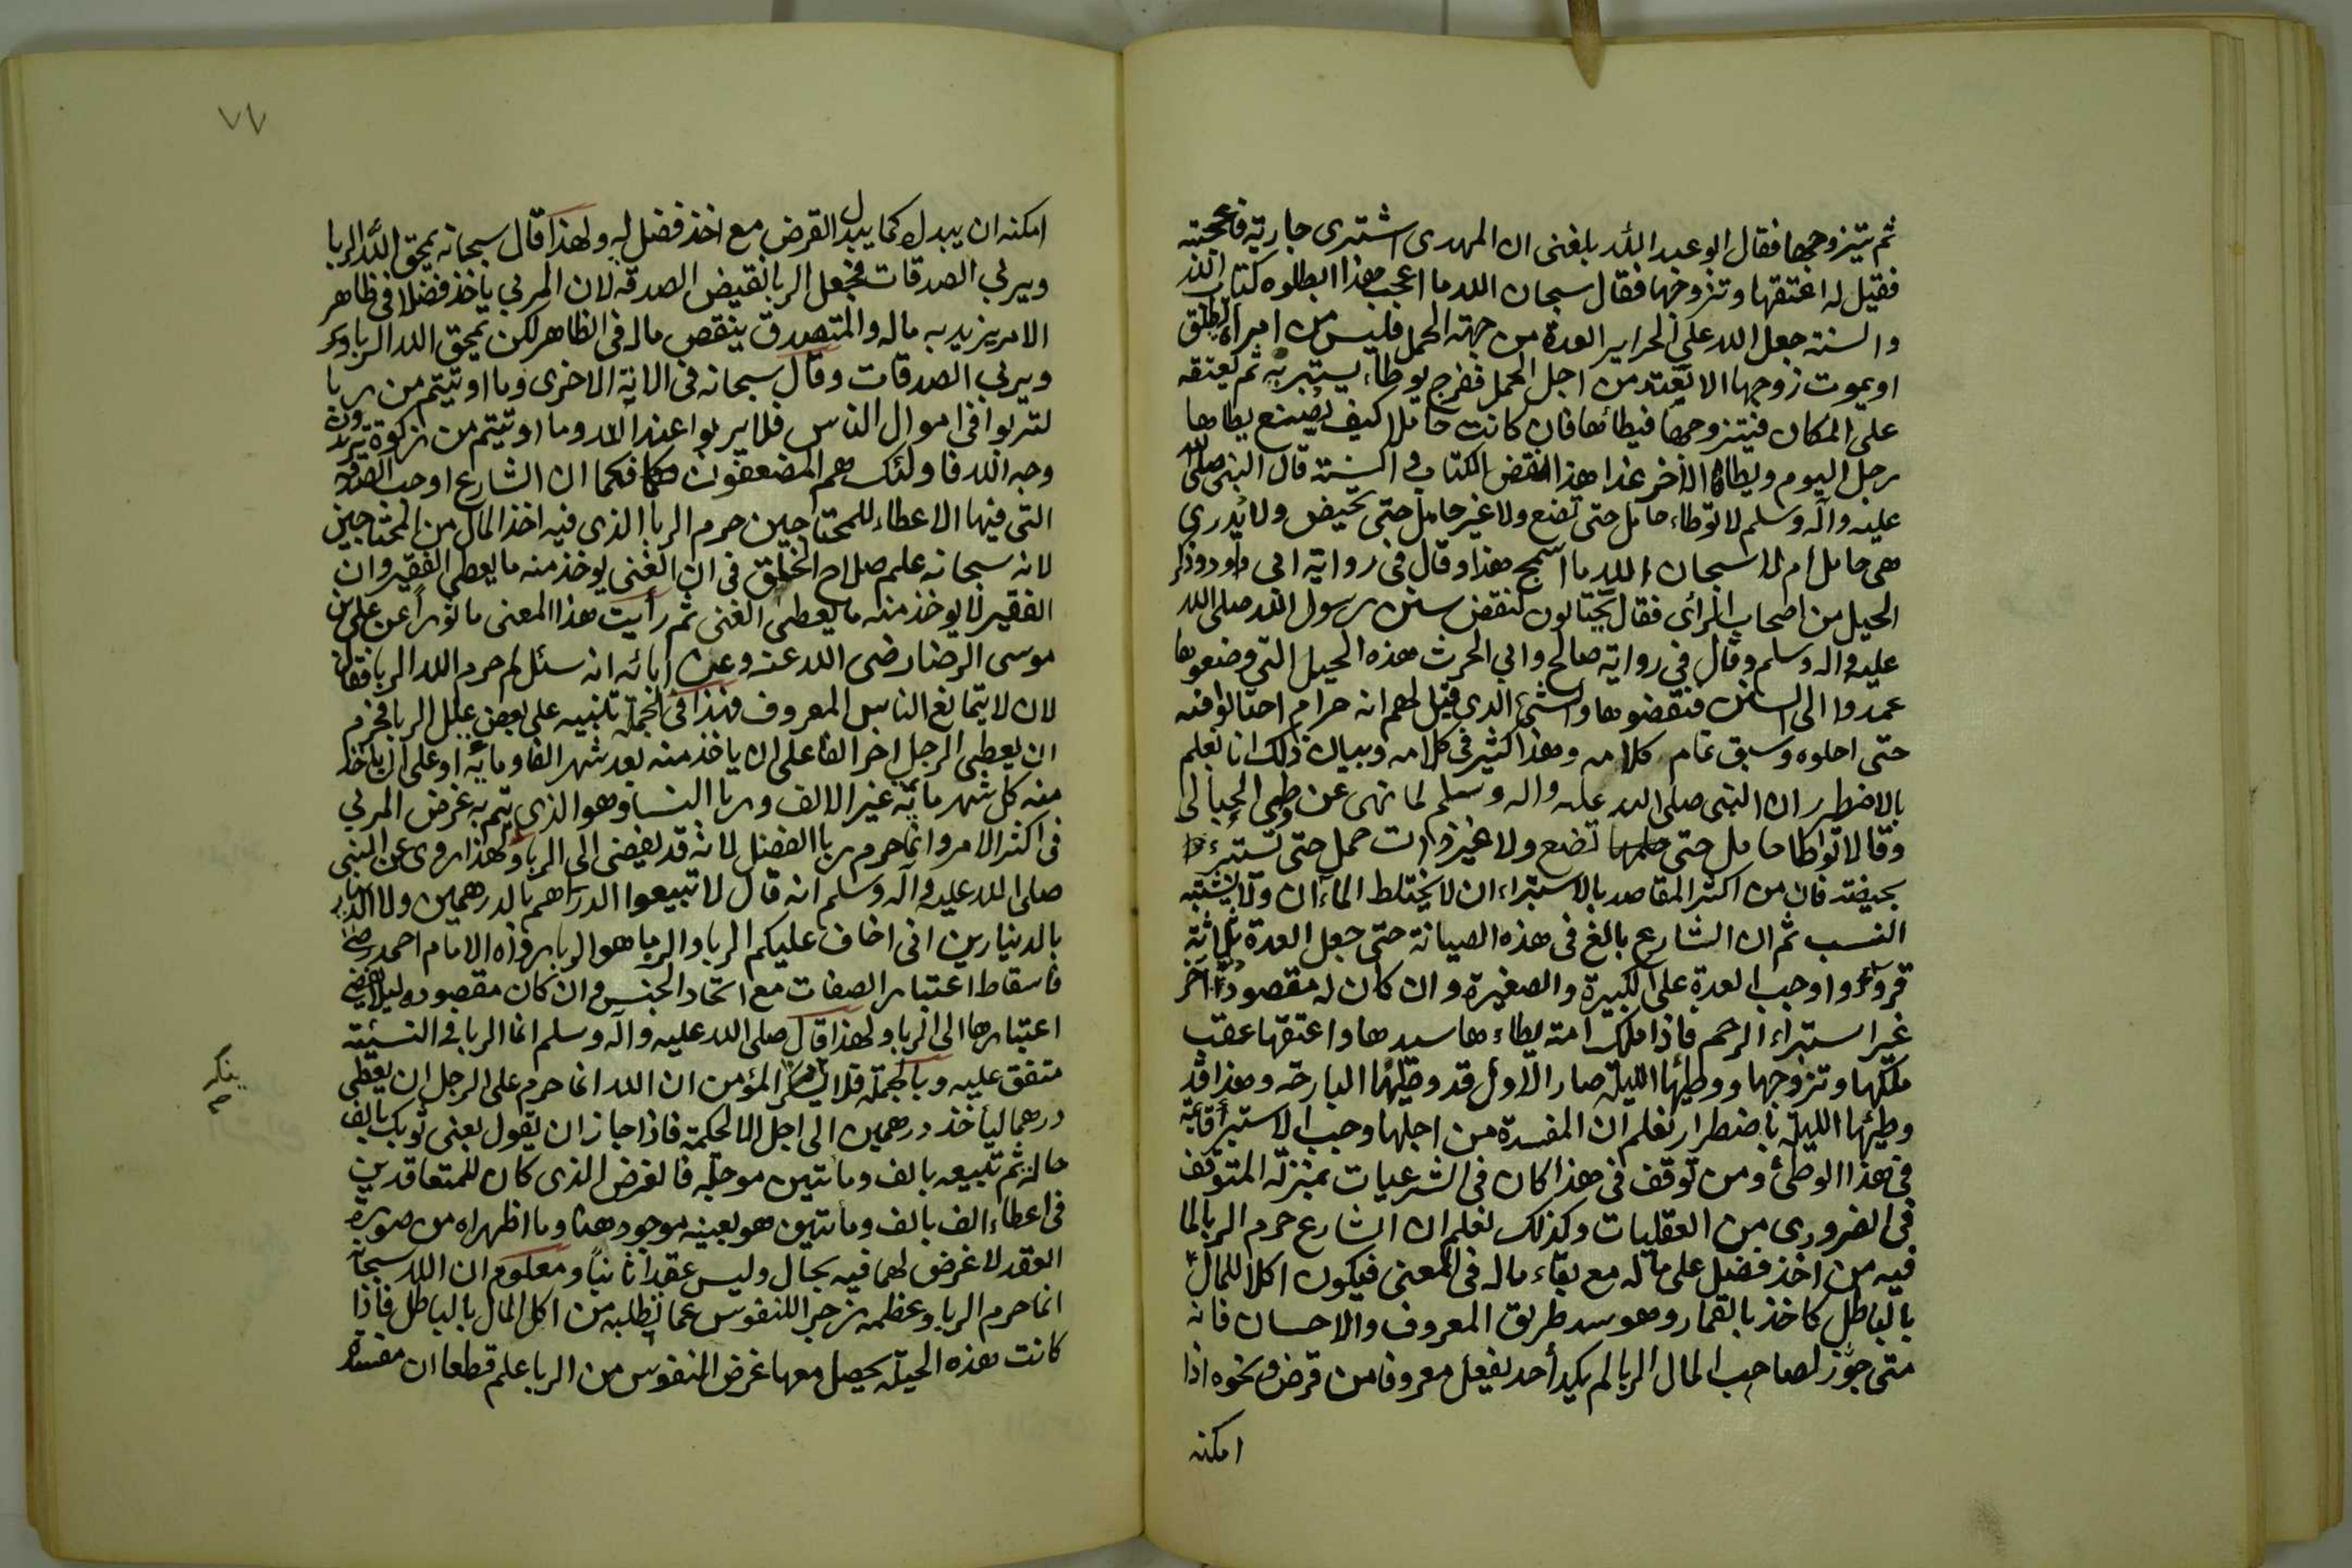 ثم يتزوجها فقال ابو عبد الله بلغني ان المهدى اشترى جارية فاعجبته
فقيل له اعتقها وتزوجها فقال سبحان الله ما اعجب هذا ابطلوه كتاب الله
والسنة جعل الله على الحراير العدة من جهة الحمل فليس من امراة تطلق
او يموت زوجها الا تعتد من اجل الحمل ففرج يوطاء يستبريه ثم يعتقه
على المكان فيتزوجها فيطائها فان كانت حاملا كيف يصنع يطاها
رجل اليوم ويطاها الاخر غدا هذا نقض الكتاب والسنة قال النبي صلى الله
عليه وآله وسلم لا توطاء حامل حتى تضع ولا غير حامل حتى تحيض ولا يدرى
هي حامل ام لا سبحان الله ما اسمج هذا وقال فى رواية ابي داود وذكر
الحيل من اصحاب الرأى فقال يحتالون لنقض سنن رسول الله صلى الله
عليه واله وسلم وقال فى رواية صالح وابي الحرث هذه الحيل التي وضعوها
عمدوا الى السنن فنقضوها والشئ الذي قيل لهم انه حرام احتالوا فيه
حتى احلوه وسبق تمام كلامه وهذا كثير فى كلامه وبيان ذلك انا نعلم
بالاضطرار ان النبي صلى الله عليه واله وسلم لما نهى عن وطئ الحبالى
وقال لا توطا حامل حتى تضع ولا غير ذات حمل حتى تستبرء
بحيضة فان من اكثر المقاصد بالاستبراء ان لا يختلط الماءان ولا يشتبه
النسب ثم ان الشارع بالغ فى هذه الصيانة حتى جعل العدة ثلاثة
قروء واوجب العدة على الكبيرة والصغيرة وان كان له مقصود آخر
غير استبراء الرحم فاذا ملك امة يطاءها سيدها واعتقها عقب
ملكها وتزوجها ووطيها الليلة صار الاول قد وطيها البارحة وهذا قد
وطيها الليلة باضطرار نعلم ان المفسدة من اجلها وجب الاستبرا قائمة
في هذا الوطئ ومن توقف فى هذا كان فى الشرعيات بمنزلة المتوقف
فى الضرورى من العقليات وكذلك نعلم ان الشارع حرم الربا لما
فيه من اخذ فضل على ماله مع بقاء ماله فى المعنى فيكون اكلا للمال
بالباطل كاخذ بالقمار وهو سد طريق المعروف والاحسان فانه
متى جوز لصاحب المال الربا لم يكد أحد يفعل معروفا من قرض ونحوه اذا
امكنه
٧٧
امكنه ان يبدل كما يبدل القرض مع اخذ فضل له ولهذا قال سبحانه يمحق الله الربا
ويربي الصدقات فجعل الربا نقيض الصدقة لان المربي ياخذ فضلا في ظاهر
الامر يزيد به ماله والمتصدق ينقص ماله فى الظاهر لكن يمحق الله الربا
ويربي الصدقات وقال سبحانه فى الاية الاخرى وما اوتيتم من ربا
لتربوا في اموال الناس فلا يربوا عند الله وما اوتيتم من زكوة تريدون
وجه الله فاولئك هم المضعفون فكما ان الشارع اوجب الصدقة
التى فيها الاعطاء للمحتاجين حرم الربا الذى فيه اخذ المال من المحتاجين
لانه سبحانه علم صلاح الخلق فى ان الغنى يوخذ منه ما يعطى الفقير وان
الفقير لا يوخذ منه ما يعطى الغنى ثم رأيت هذا المعنى ماثورا عن على بن
موسى الرضا رضى الله عنه وعن ابائه انه سئل لم حرم الله الربا فقال
لان لا يتمانع الناس المعروف فهذا فى الجملة تنبيه على بعض علل الربا فحرم
ان يعطى الرجل اخر الفا على ان ياخذ منه بعد شهر الفا ومائة او على ان ياخذ
منه كل شهر مائة غير الالف وربا النسا وهو الذى يتم به غرض المربي
فى اكثر الامر وانما حرم ربا الفضل لانه قد يفضى الى الربا ولهذا روى عن النبي
صلى الله عليه وآله وسلم انه قال لا تبيعوا الدراهم بالدرهمين ولا الدينار
بالدينارين انى اخاف عليكم الربا والرما هو الربا رواه الامام احمد رضى
فاسقاط اعتبار الصفات مع اتحاد الجنس وان كان مقصودا ليلا يفضى
اعتبارها الى الربا ولهذا قال صلى الله عليه وآله وسلم انما الربا فى النسيئة
متفق عليه وبالجملة فلا المؤمن ان الله انما حرم على الرجل ان يعطى
ينكر
درهما ليأخذ درهمين الى اجل الا لحكمة فاذا جاز ان يقول بعنى ثوبك بالف
حالة ثم تبيعه بالف ومائتين موجلة فالغرض الذى كان للمتعاقدين
فى اعطاء الف بالف ومائتين هو بعينه موجود هنا وما اظهراه من صورة
العقد لا غرض لهما فيه بحال وليس عقدا ثابتا ومعلوم ان الله سبحانه
انما حرم الربا وعظمه زجرا للنفوس عما تطلبه من اكل المال بالباطل فاذا
كانت هذه الحيلة يحصل معها غرض النفوس من الربا علم قطعا ان مفسدة